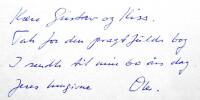 Kære Gustav og Kiss.
Tak for den pragtfulde bog
I sendte til min 60 års dag
Jeres hengivne Ole.